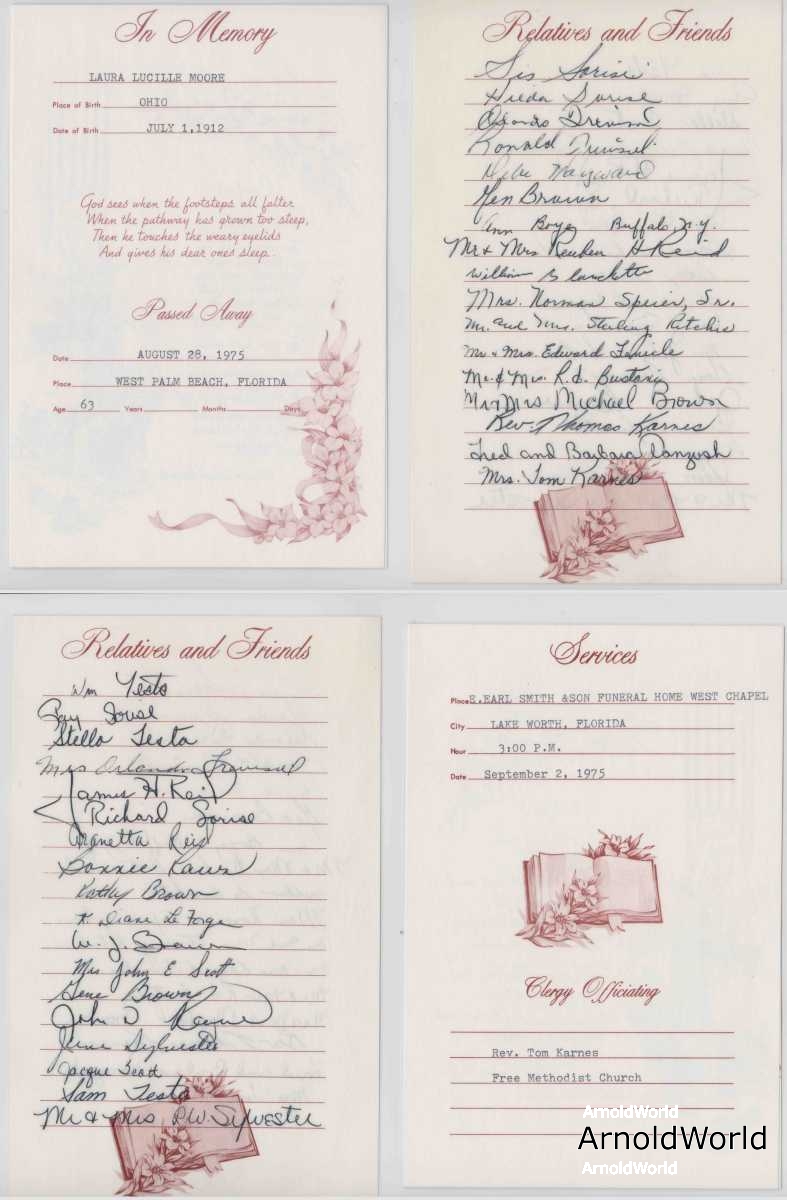 In Memory
LAURA LUCILLE MOORE
Place of Birth OHIO
Date of Birth JULY 1,1912
God sees when the footsteps all falter
When the pathway has grown too steep,
Then he touches the weary eyelids
And gives his dear ones sleep.
Passed Away
Date AUGUST 28, 1975
Place WEST PALM BEACH, FLORIDA
Age 63 Years Months Days
Relatives and Friends
Sis Sorise
Hilda Sorise
Ronald
Debe Hayward
Gen Brown
Ann Boye Buffalo, N.Y.
Mr & Mrs Reuben H Reid
William Blanchette
Mrs. Norman Speier, Sr.
Mr. and Mrs. Sterling Ritchie
Mr & Mrs. Edward
Mr. & Mrs. R.L.
Mr Mrs Michael Brown
Rev. Thomas Karnes
Fred and Barbara
Mrs. Tom Karnes
Relatives and Friends
Wm Testa
Ray Sorise
Stella Testa
Mrs Orlando
James H. Reid
Richard Sorise
Reid
Bonnie
Kathy Brown
K. Diane La Forge
W. J. Brown
Mrs John E Scott
Gene Brown
John D
June Sylvester
Jacque Scott
Sam Testa
Mr & Mrs P.W. Sylvester
Services
Place E.EARL SMITH &SON FUNERAL HOME WEST CHAPEL
City LAKE WORTH, FLORIDA
Hour 3:00 P.M.
Date September 2, 1975
Clergy Officiating
Rev. Tom Karnes
Free Methodist Church
ArnoldWorld
ArnoldWorld
ArnoldWorld